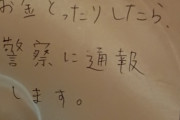 お金とったりしたら、
警察に通報
します。